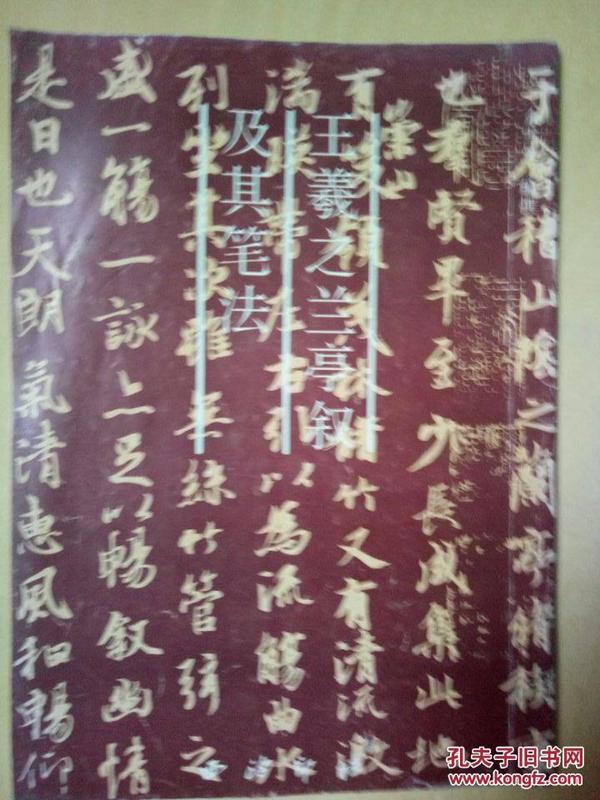 王羲之兰亭叙
及其笔法
于會稽山陰之蘭亭脩禊
也群賢畢至少長咸集此地
有崇山
峻領茂林脩竹又有清流激
湍映帶左右引以為流觴曲水
列坐其次雖無絲竹管弦之
盛一觴一詠亦足以暢敘幽情
是日也天朗氣清惠風和暢仰
孔夫子旧书网
www.kongfz.com